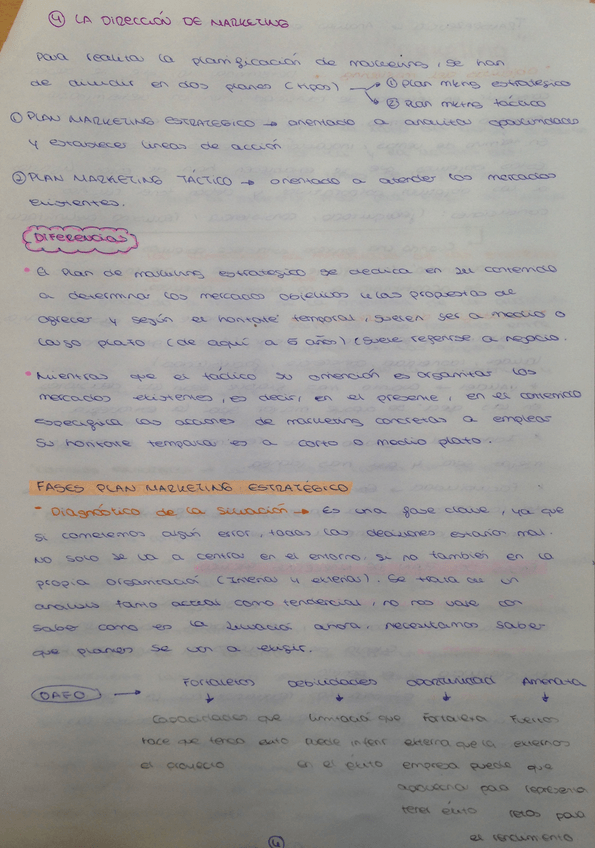 ④ LA DIRECCIÓN DE MARKETING
Para realizar la planificación de marketing, se han
de aunar en dos planes (tipos) → ① Plan mkting estratégico
② Plan mkting táctico
① PLAN MARKETING ESTRATEGICO → orientado a analizar oportunidades
y establecer lineas de acción
② PLAN MARKETING TÁCTICO → orientado a atender los mercados
existentes.
DIFERENCIAS
• El Plan de marketing estratégico se dedica en su contenido
a determinar los mercados objetivos y las propuestas de
ogrecer y según el horizonte temporal, suelen ser a medio o
largo plazo (de aquí a 5 años) (suele regerirse a negocio.
• Mientras que el táctico su intención es organizar los
mercados existentes, es decir, en el presente, en el contenido
especifica las acciones de marketing concretas a emplear
Su horizonte temporal es a corto o medio plazo.
FASES PLAN MARKETING ESTRATÉGICO
- Diagnóstico de la situación → Es una fase clave, ya que
si cometemos algún error, todas las decisiones estarían mal.
No solo se va a centrar en el entorno, si no también en la
propia organización (Interna y externa). Se trata de un
análisis tanto actual como tendencial, no nos vale con
saber como es la situación ahora, necesitamos saber
que planes se van a elegir.
DAFO → Fortalezas Debilidades oportunidad Amenaza
Capacidades que limitación que Fortaleza Fuerzas
hace que tenga éxito puede influir externa que la externas
el proyecto en el éxito empresa puede que
aprovechar para
tener éxito retos para
el rendimiento
④